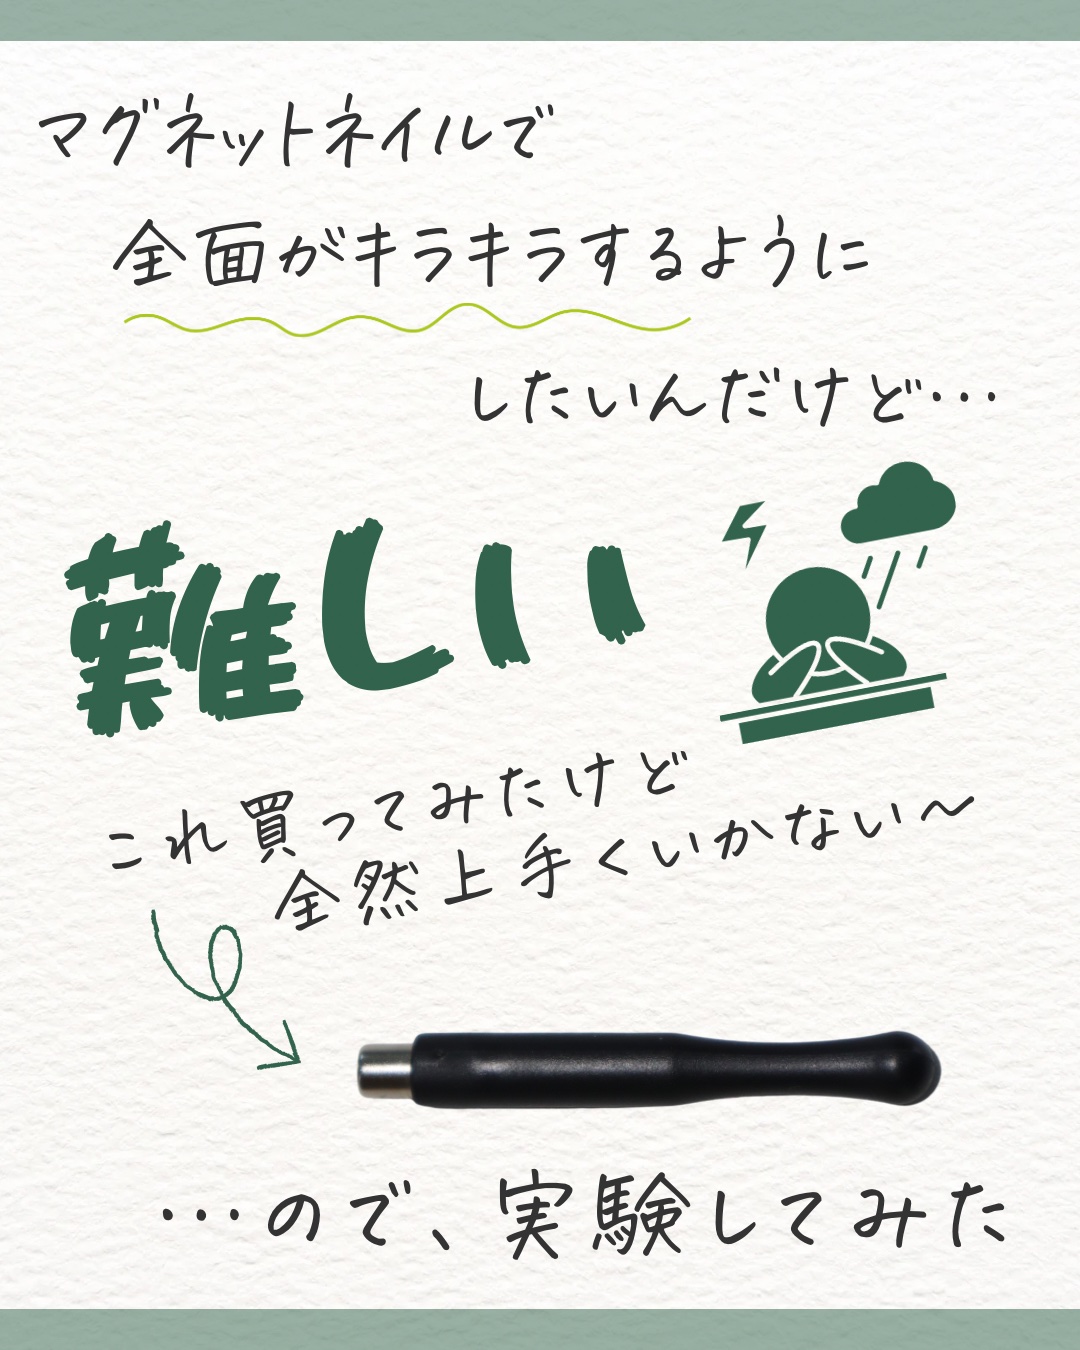 マグネットネイルで
全面がキラキラするように
したいんだけど…
難しい
これ買ってみたけど
全然上手くいかない～
…ので、実験してみた